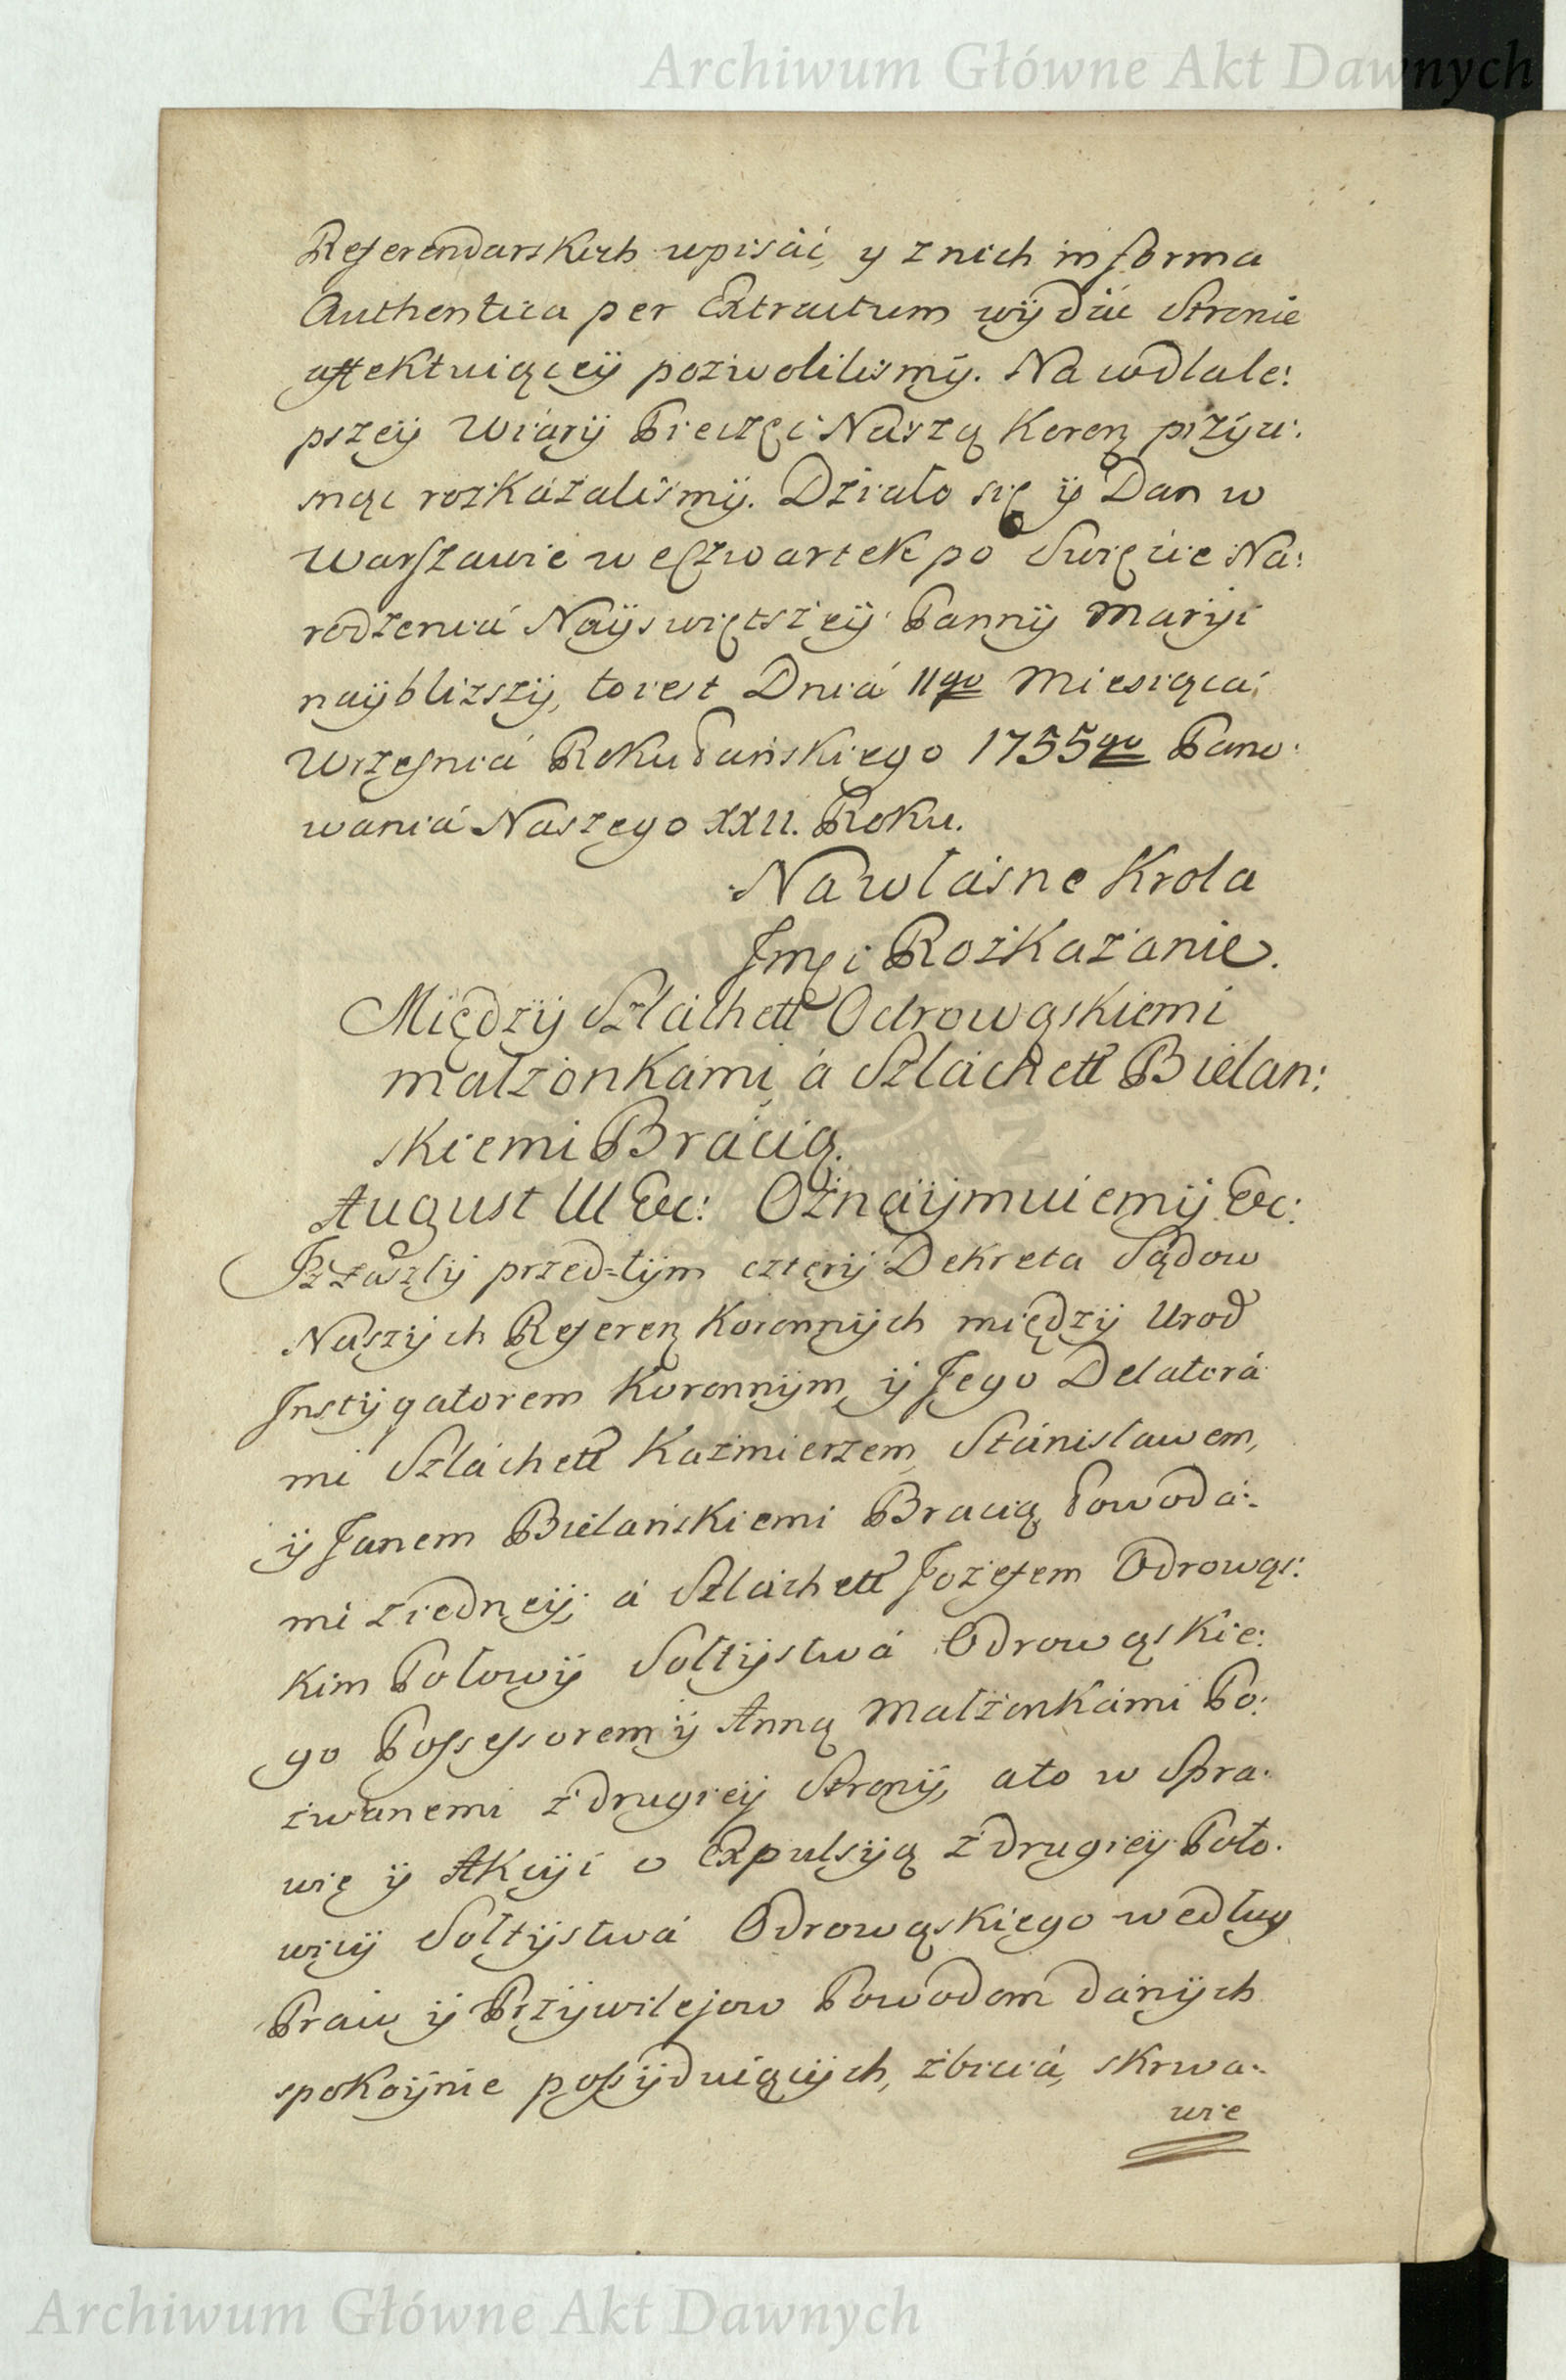 Archiwum Główne Akt Dawnych
Referendarskich wpisać, y z nich in forma
Authentica per Extractum wÿdać Stronie
affektuiąceÿ pozwolilismÿ. Na wdlale:
pszeÿ Wiarÿ Pieczęć Naszą Koron przÿci:
snąc rozkazalismÿ. Działo się ÿ Dan w
Warszawie w czwartek po Swięcie Na:
rodzenia Naÿswiętszeÿ Pannÿ Marÿi
naÿbliższÿ, to iest Dnia 11go Miesiąca
Wrzesnia Roku Pańskiego 1755go Pano:
wania Naszego XXII. Roku.
Na własne Krola
Jmci Rozkazanie.
Międzÿ Szlachett Odrowąskiemi
małżonkami á Szlachett Bielan:
skiemi Bracią.
August III &c: Oznaÿmuiemÿ &c:
Iż zaszlÿ przed-tÿm czterÿ Dekreta Sądow
Naszÿch Referen Koronnÿch międzÿ Urod
Instÿgatorem Koronnÿm, ÿ Jego Delatorá
mi Szlachett Kazmierzem, Stánisławem,
ÿ Janem Bielańskiemi Bracią Powodá:
mi z iedneÿ, á Szlachett Jozefem Odrowąs:
kim Połowÿ Sołtÿstwá Odrowąskie:
go Possessorem ÿ Anną Małżonkámi Po:
zwanemi z drugieÿ Stronÿ, a to w Spra:
wie ÿ Akcÿi o Expulsÿą z drugieÿ Poło:
wicÿ Sołtÿstwá Odrowąskiego według
Praw ÿ Przÿwilejow Powodom danÿch
spokoÿnie possÿduiącÿch, zbicia, skrwa:
wie
Archiwum Główne Akt Dawnych